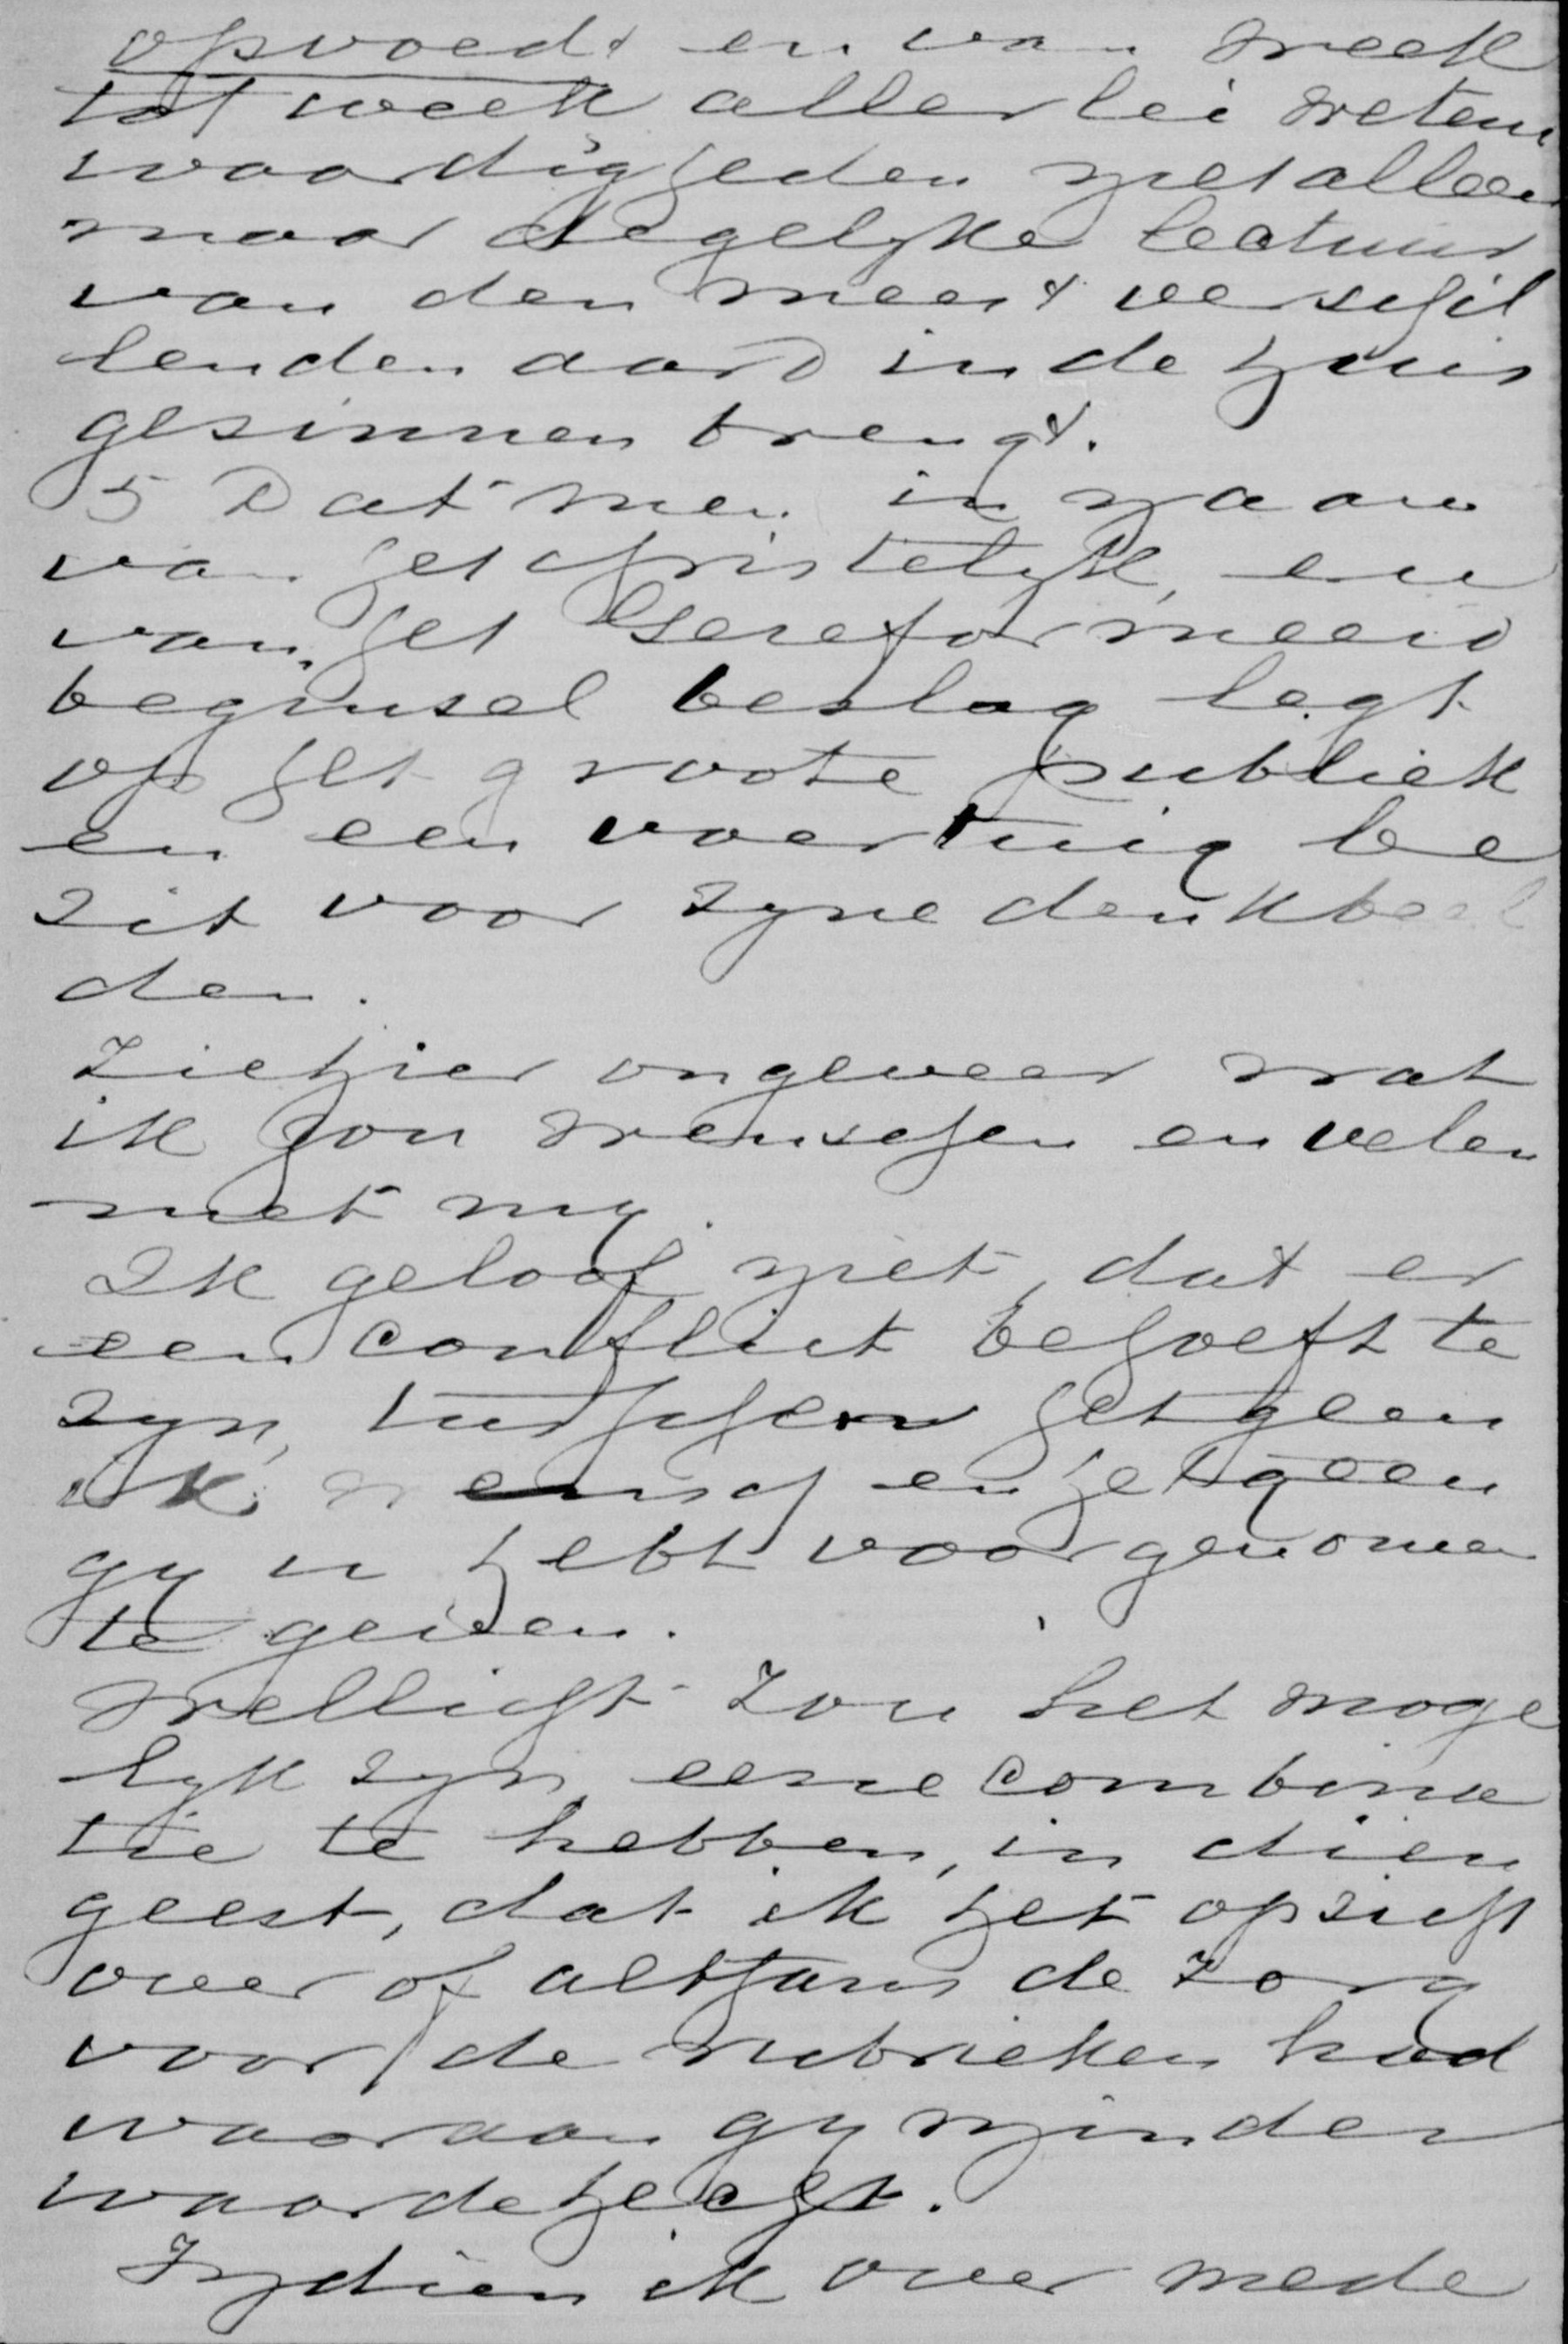 opvoedt en van week
tot week allerlei wetens
waardigheden niet alleen
maar degelyke lectuur
van den meest verschil
lenden aard in de huis
gezinnen brengt.
5 Dat men in naam
van het christelyk, en
van het Gereformeerd
beginsel beslag legt
op het groote publiek
en een voertuig be
zit voor zyne denkbeel
den.
Ziehier ongeveer wat
ik zou wenschen en velen
met my.
Ik geloof niet, dat er
een conflict behoeft te
zyn, tusschen hetgeen
ik wensch en hetgeen
gy u hebt voorgenomen
te geven.
Wellicht zou het moge
lyk zyn eene combina
tie te hebben, in dien
geest, dat ik het opzicht
over of althans de zorg
voor de rubrieken had
waaraan gy minder
waarde hecht.
Indien ik over mede